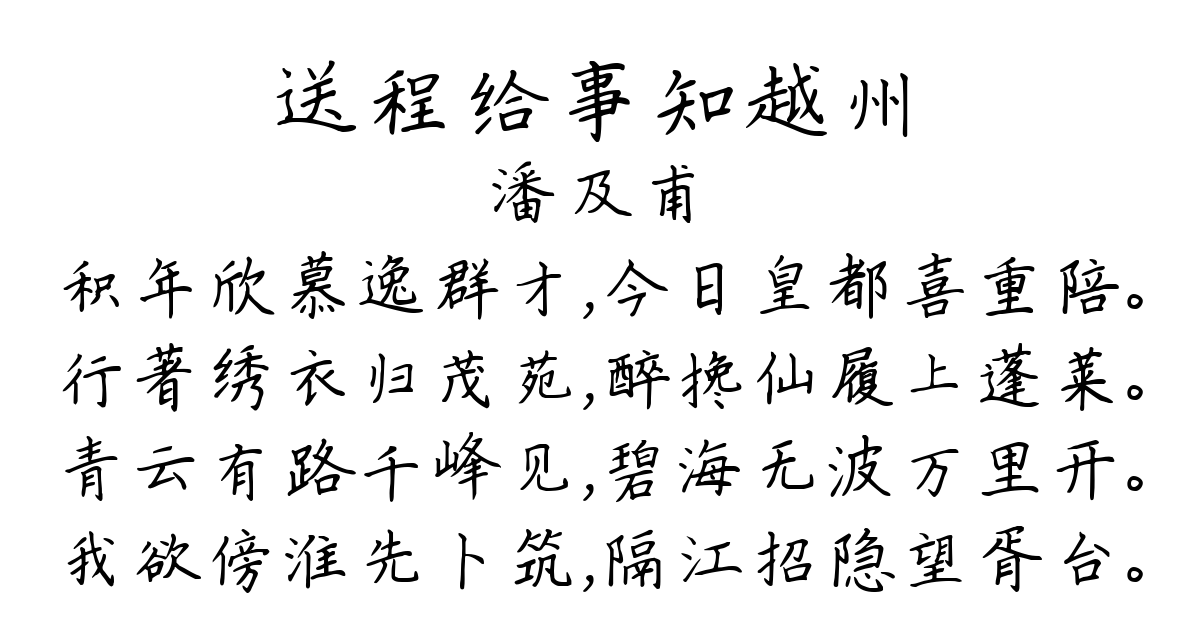 送程给事知越州
潘及甫
积年欣慕逸群才,今日皇都喜重陪。
行著绣衣归茂苑,醉搀仙履上蓬莱。
青云有路千峰见,碧海无波万里开。
我欲傍淮先卜筑,隔江招隐望胥台。